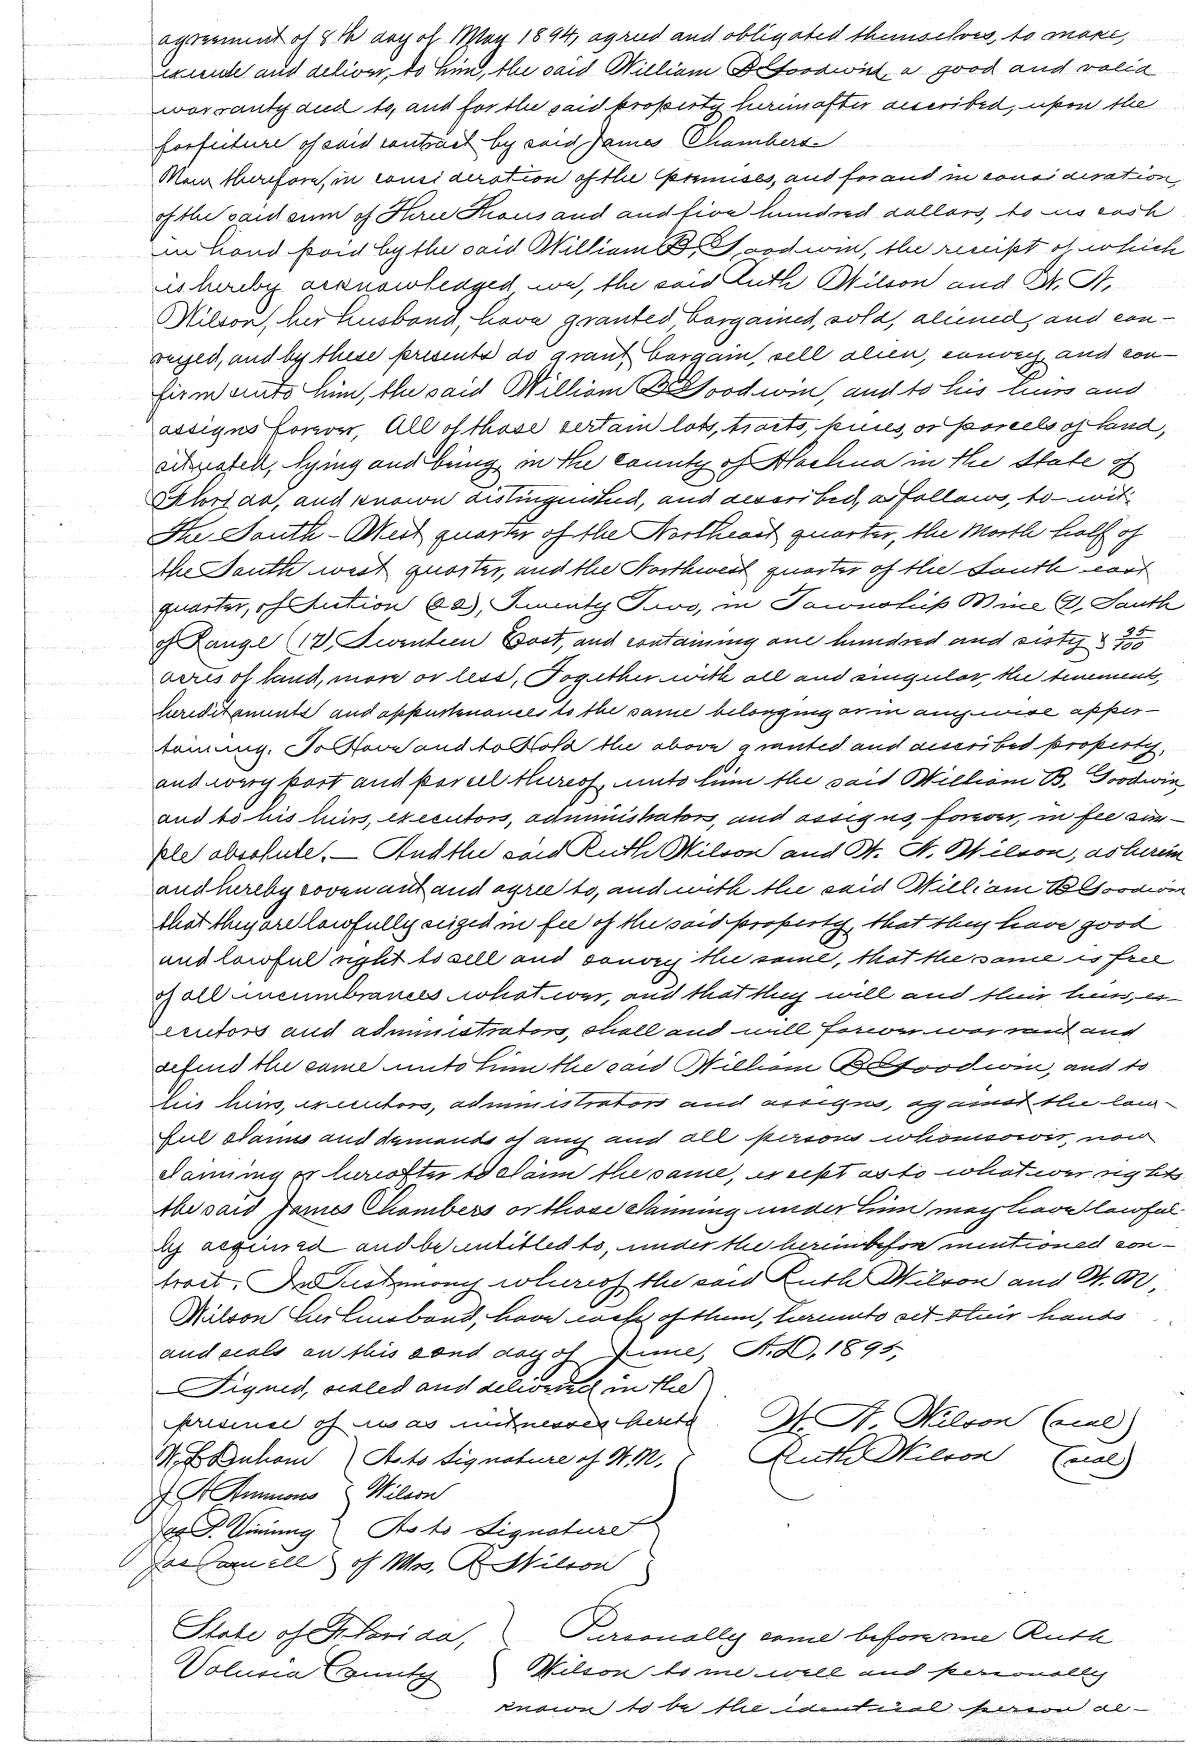 agreement of 8th day of May 1894, agreed and obligated themselves, to make,
execute and deliver, to him, the said William B Goodwin, a good and valid
warranty deed to, and for the said property hereinafter described, upon the
forfeiture of said contract by said James Chambers.
Now therefore, in consideration of the premises, and for and in consideration,
of the said sum of Three Thousand and five hundred dollars, to us cash
in hand paid by the said William B, Goodwin, the receipt of which
is hereby acknowledged, we, the said Ruth Wilson and W. N,
Wilson, her husband, have granted, bargained, sold, aliened, and con-
veyed, and by these presents do grant, bargain, sell alien, convey, and con-
firm unto him, the said William B Goodwin, and to his heirs and
assigns forever, All of those certain lots, tracts, pieces, or parcels of land,
situated, lying and being, in the County of Alachua in the State of
Florida, and known distinguished, and described, as follows, to-wit:
The South-West quarter of the Northeast quarter, the North half of
the South west quarter, and the Northwest quarter of the South east
quarter, of Section (22), Twenty Two, in Township Nine (9), South
of Range (17), Seventeen East, and containing one hundred and sixty & 25/100
acres of land, more or less, Together with all and singular, the tenement,
hereditaments and appurtenances to the same belonging or in any wise apper-
taining. To Have and to Hold the above granted and described property,
and every part and parcel thereof, unto him the said William B. Goodwin,
and to his heirs, executors, administrators, and assigns, forever, in fee sim-
ple absolute. — And the said Ruth Wilson and W. N. Wilson, do herein
and hereby covenant and agree to, and with the said William B Goodwin
that they are lawfully seized in fee of the said property, that they have good
and lawful right to sell and convey the same, that the same is free
of all incumbrances whatever, and that they will and their heirs, ex-
ecutors and administrators, shall and will forever warrant and
defend the same unto him the said William B Goodwin, and to
his heirs, executors, administrators and assigns, against the law-
ful claims and demands of any and all persons whomsoever, now
claiming or hereafter to claim the same, except as to whatever rights
the said James Chambers or those claiming under him may have lawful-
ly acquired and be entitled to, under the hereinbefore mentioned con-
tract. In Testimony whereof the said Ruth Wilson and W. N,
Wilson her husband, have each of them, hereunto set their hands
and seals on this 2nd day of June, A.D, 1895,
Signed, sealed and delivered in the
presence of us as witnesses hereto W. N, Wilson (seal)
As to Signature of W. N. Ruth Wilson (seal)
Ammons Wilson
Jas P. Vining As to Signature
Jas of Mrs, R Wilson
State of Florida, Personally came before me Ruth
Volusia County Wilson to me well and personally
known to be the identical person de-